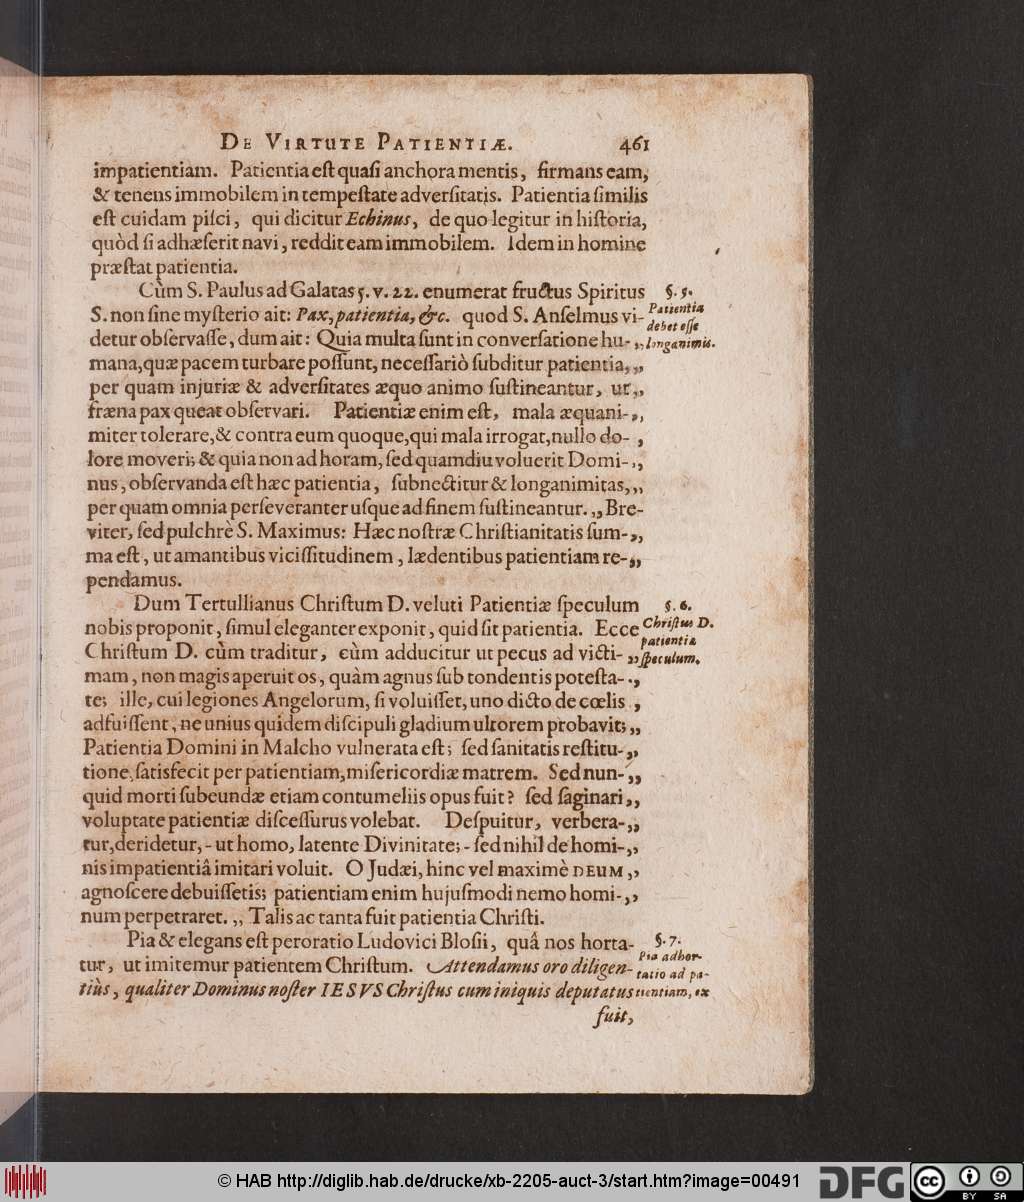 DE VIRTUTE PATIENTIÆ. 461
impatientiam. Patientia eſt quaſi anchora mentis, firmans eam,
& tenens immobilem in tempeſtate adverſitatis. Patientia ſimilis
eſt cuidam piſci, qui dicitur Echinus, de quo legitur in hiſtoria,
quòd ſi adhæſerit navi, reddit eam immobilem. Idem in homine
præſtat patientia.
Cùm S. Paulus ad Galatas 5. v. 22. enumerat fructus Spiritus
§. 5.
S. non ſine myſterio ait: Pax, patientia, &c. quod S. Anſelmus vi-
Patientia
debet eſſe
longanimis.
detur obſervaſſe, dum ait: Quia multa ſunt in converſatione hu- „
mana, quæ pacem turbare poſſunt, neceſſariò ſubditur patientia, „
per quam injuriæ & adverſitates æquo animo ſuſtineantur, ut „
fræna pax queat obſervari. Patientiæ enim eſt, mala æquani- „
miter tolerare, & contra eum quoque, qui mala irrogat, nullo do- ,
lore moveri; & quia non ad horam, ſed quamdiu voluerit Domi- „
nus, obſervanda eſt hæc patientia, ſubnectitur & longanimitas, „
per quam omnia perſeveranter uſque ad finem ſuſtineantur. „ Bre-
viter, ſed pulchrè S. Maximus: Hæc noſtræ Chriſtianitatis ſum- „
ma eſt, ut amantibus viciſſitudinem, lædentibus patientiam re- „
pendamus.
Dum Tertullianus Chriſtum D. veluti Patientiæ ſpeculum
§. 6.
nobis proponit, ſimul eleganter exponit, quid ſit patientia. Ecce
Chriſtus D.
patientiæ
ſpeculum.
Chriſtum D. cùm traditur, cùm adducitur ut pecus ad victi- „
mam, non magis aperuit os, quàm agnus ſub tondentis poteſta- „
te; ille, cui legiones Angelorum, ſi voluiſſet, uno dicto de cœlis ,
adfuiſſent, ne unius quidem diſcipuli gladium ultorem probavit; „
Patientia Domini in Malcho vulnerata eſt; ſed ſanitatis reſtitu- „
tione, ſatisfecit per patientiam, miſericordiæ matrem. Sed nun- „
quid morti ſubeundæ etiam contumeliis opus fuit? ſed ſaginari „
voluptate patientiæ diſceſſurus volebat. Deſpuitur, verbera- „
tur, deridetur, - ut homo, latente Divinitate; - ſed nihil de homi- „
nis impatientiâ imitari voluit. O Judæi, hinc vel maximè DEUM „
agnoſcere debuiſſetis; patientiam enim hujuſmodi nemo homi- „
num perpetraret. „ Talis ac tanta fuit patientia Chriſti.
Pia & elegans eſt peroratio Ludovici Bloſii, quâ nos horta-
§. 7.
tur, ut imitemur patientem Chriſtum. Attendamus oro diligen-
Pia adhor-
tatio ad pa-
tientiam, ex
tiùs, qualiter Dominus noſter IESVS Chriſtus cum iniquis deputatus
fuit,
© HAB http://diglib.hab.de/drucke/xb-2205-auct-3/start.htm?image=00491
DFG
cc BY SA